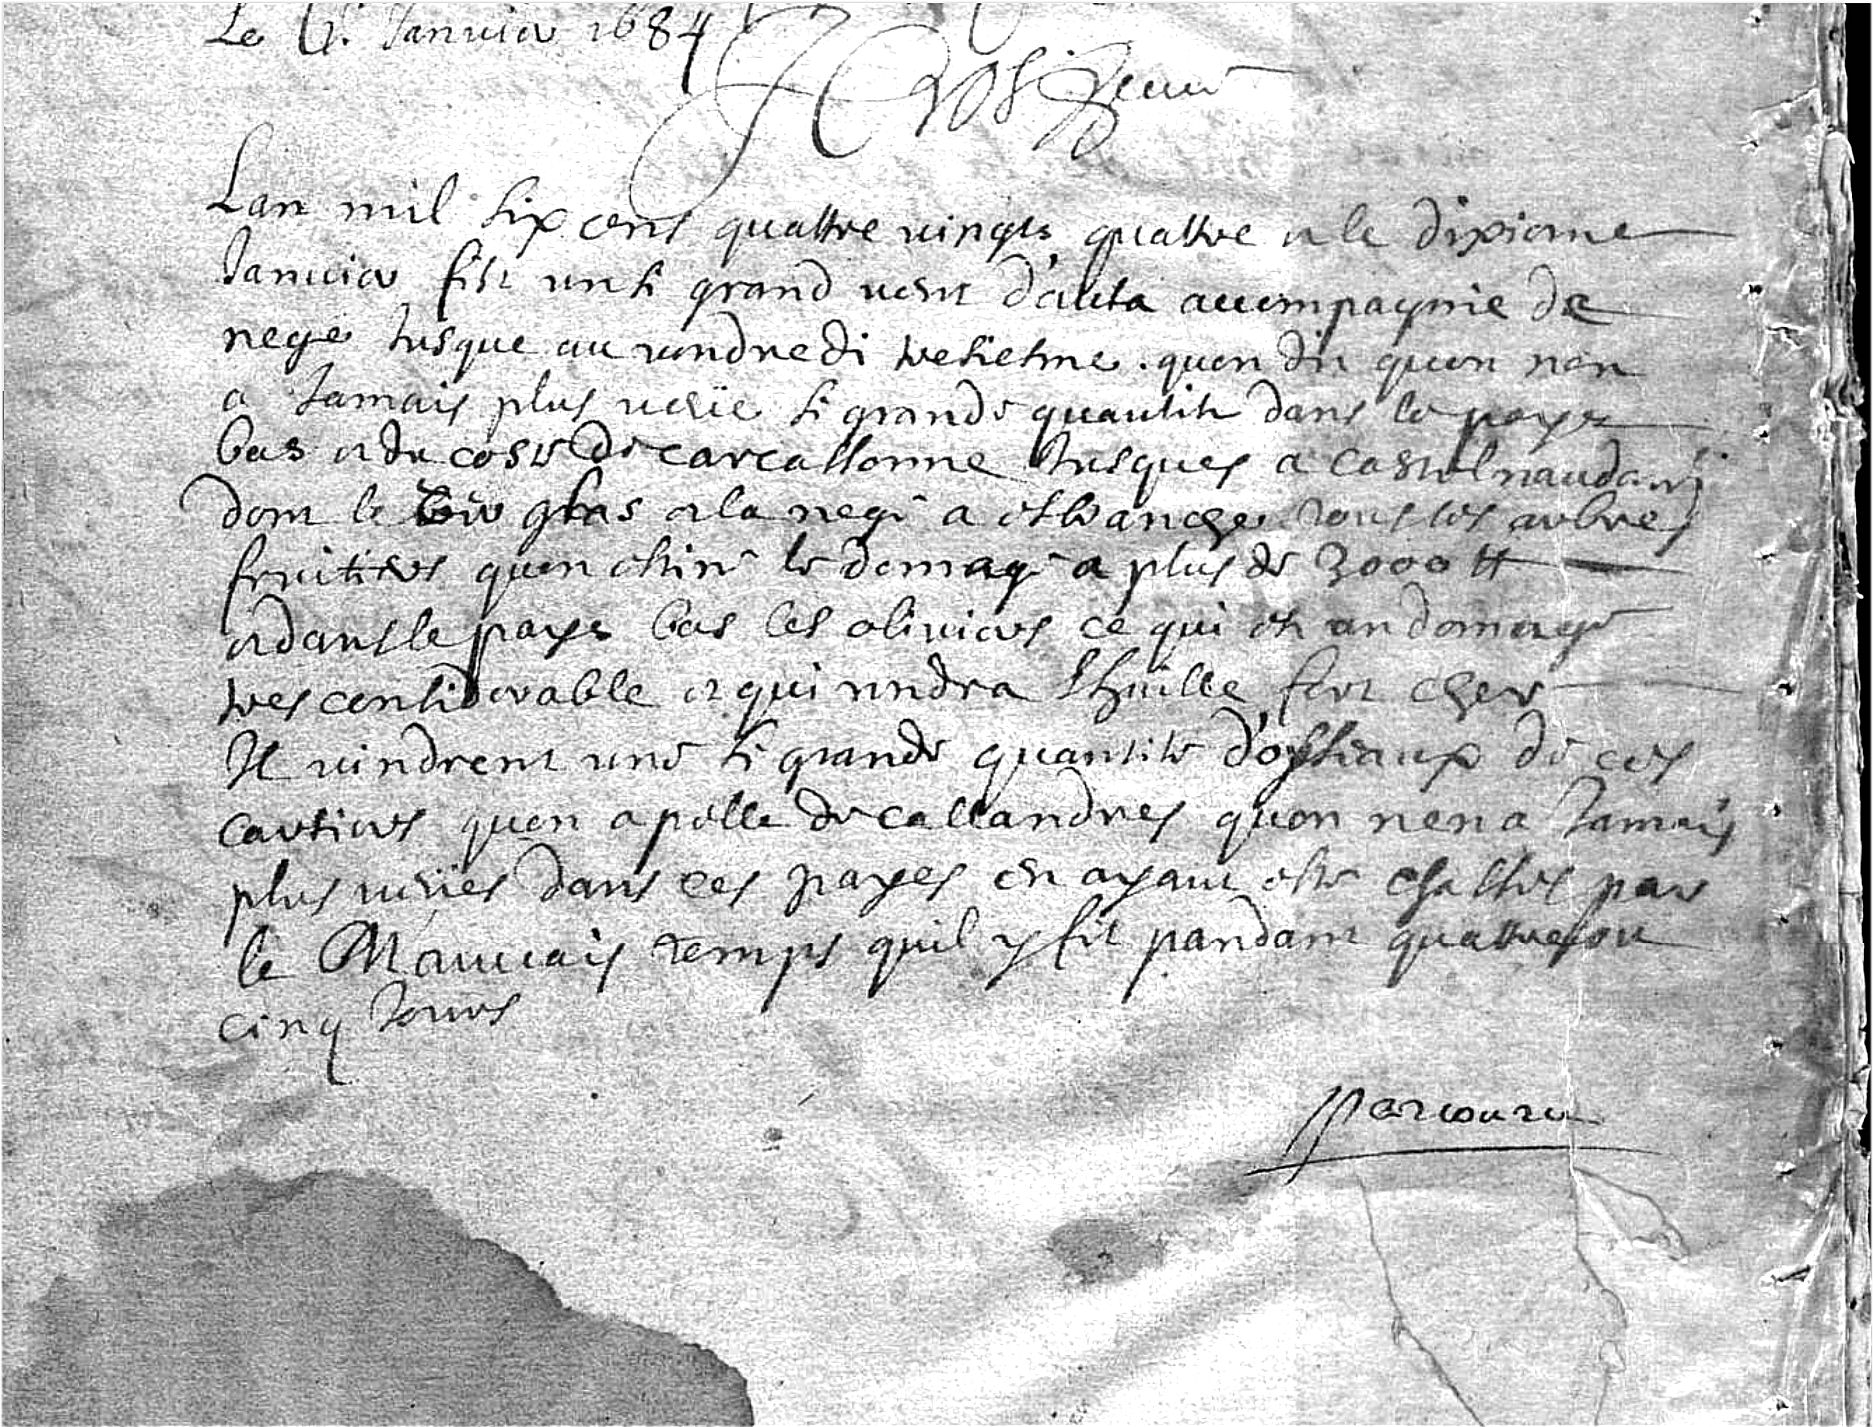 Le Janvier 1684
Lan mil six cens quattre vingts quattre et le dixieme
Janvier fist un si grand vent d'auta accompagnie de
nege jusque au vendredi tresiesme . quon dit quon nen
a Jamais plus veüe si grande quantite dans le payx
bas et du coste de carcassonne Jusques a castelnaudari
dont le glas et la nege a tous les arbres
fruitiers quon estime le domage a plus de 3000 tt
et dans le payx bas les oliviers ce qui est un domage
tres considerable et qui rendra lhuille fort cher
Il vindrent une si grande quantite d'osseaux de ces
cartiers quon apelle de callandres quon nen a Jamais
plus veües dans ces payes en ayant este chasses par
le Mauvais temps quil y fit pandant quattre ou
cinq Jours